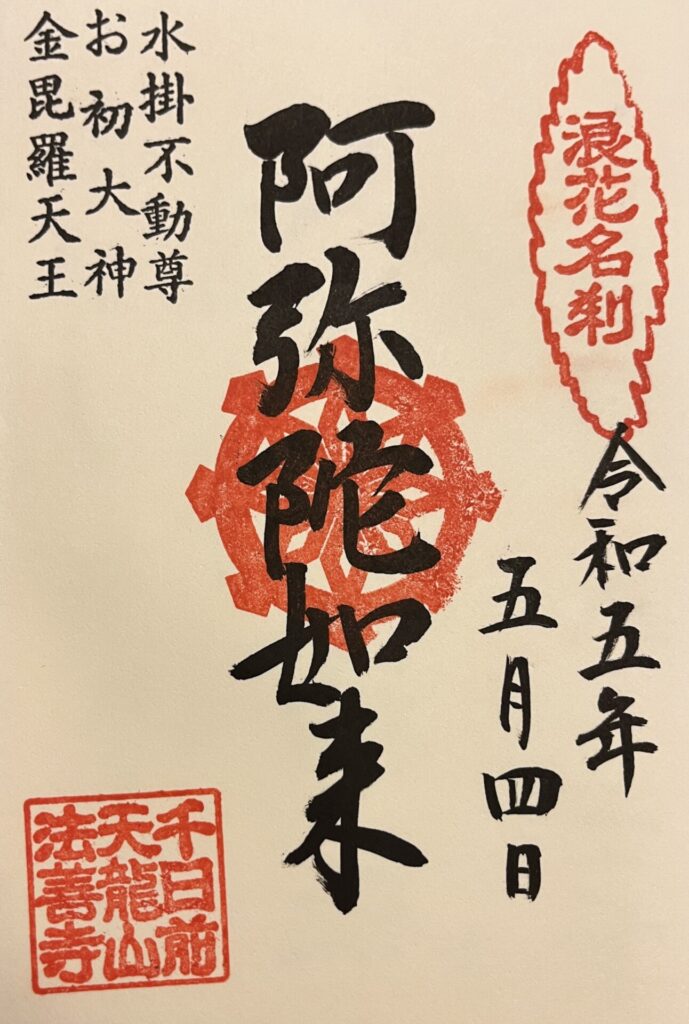 浪花名刹
令和五年
五月四日
阿弥陀如来
水掛不動尊
お初大神
金毘羅天王
千日前
天龍山
法善寺